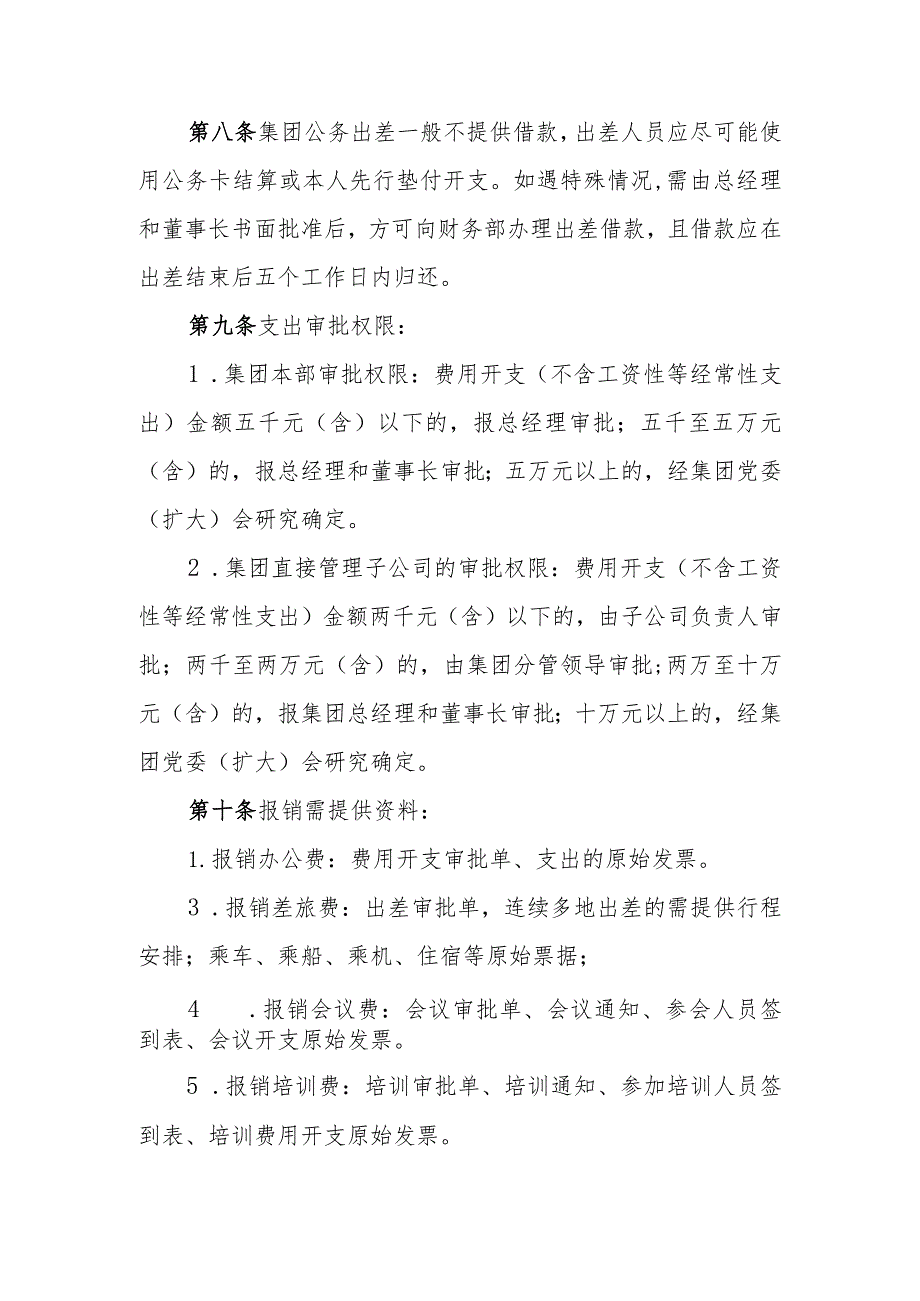 第八条集团公务出差一般不提供借款，出差人员应尽可能使
用公务卡结算或本人先行垫付开支。如遇特殊情况,需由总经理
和董事长书面批准后，方可向财务部办理出差借款，且借款应在
出差结束后五个工作日内归还。
第九条支出审批权限：
1 .集团本部审批权限：费用开支（不含工资性等经常性支
出）金额五千元（含）以下的，报总经理审批；五千至五万元
（含）的，报总经理和董事长审批；五万元以上的，经集团党委
（扩大）会研究确定。
2 .集团直接管理子公司的审批权限：费用开支（不含工资
性等经常性支出）金额两千元（含）以下的，由子公司负责人审
批；两千至两万元（含）的，由集团分管领导审批;两万至十万
元（含）的，报集团总经理和董事长审批；十万元以上的，经集
团党委（扩大）会研究确定。
第十条报销需提供资料：
1.报销办公费：费用开支审批单、支出的原始发票。
3 .报销差旅费：出差审批单，连续多地出差的需提供行程
安排；乘车、乘船、乘机、住宿等原始票据；
4 .报销会议费：会议审批单、会议通知、参会人员签
到表、会议开支原始发票。
5 .报销培训费：培训审批单、培训通知、参加培训人员签
到表、培训费用开支原始发票。